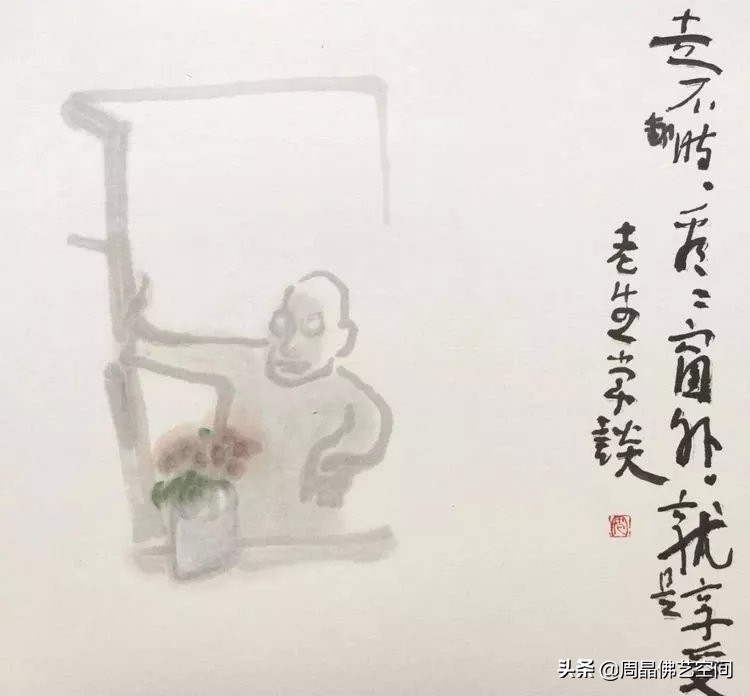 走不動时。看々窗外。就是享受
老生常談
头条 @周晶佛艺空间